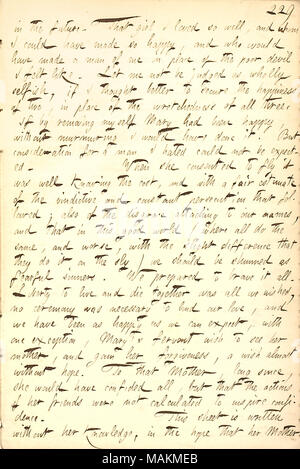 229
in the future. That girl I loved so well, and whom
I could have made so happy, and who would
have made a man of me in place of the poor devil
I felt like. Let me not be judged as wholly
selfish; if I thought better to secure the happiness
of two, in place of the wretchedness of all three.
If by remaining myself Mary had been happy
without murmuring I would have done it. But
consideration for a man I hated could not be expect-
ed. When she consented to fly it
was well knowing the cost, and with a fair estimate
of the vindictive and constant persecution that fol-
lowed; also of the disgrace attaching to our names,
and that in this good world (where all do the
same, and worse, with the slight difference that
they do it on the sly) we should be shunned as
fearful sinners. We prepared to brave it all.
Liberty to live and die together was all we wished,
no ceremony was necessary to bind our love, and
we have been as happy as we can expect, with
one exception, Mary's fervent wish to see her
mother, and gain her forgiveness, a wish almost
without hope. To that Mother, long since,
she would have confided all, but that the actions
of her friends were not calculated to inspire confi-
dence. This sheet is written
without her knowledge, in the hope that her Mother
alamy
Image ID: MAKMEB
www.alamy.com